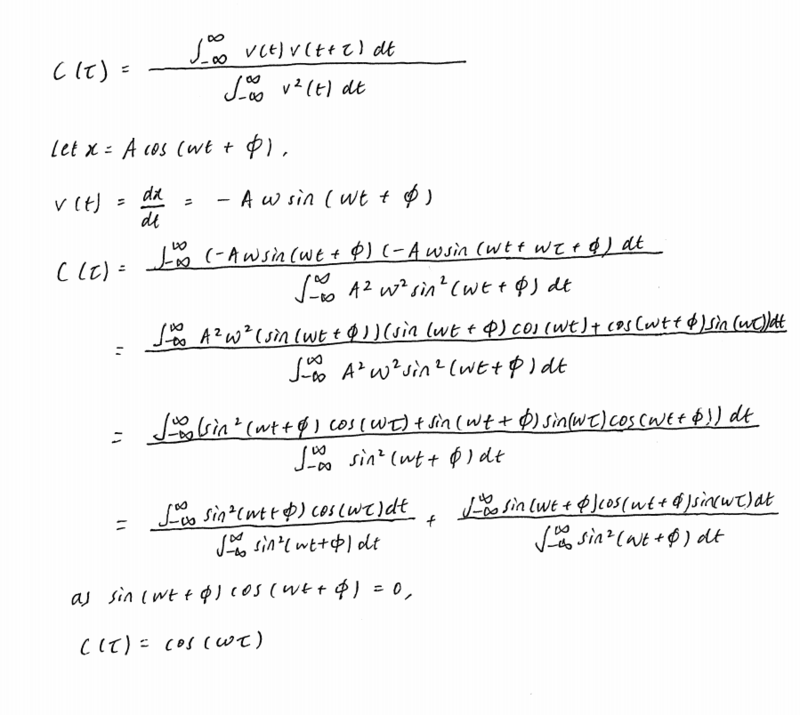 C(τ) = ∫_{-∞}^{∞} v(t) v(t+τ) dt / ∫_{-∞}^{∞} v²(t) dt
Let x = A cos (ωt + ϕ).
v(t) = dx/dt = - A ω sin (ωt + ϕ)
C(τ) = ∫_{-∞}^{∞} (-A ω sin(ωt + ϕ) (-A ω sin (ωt + ωτ + ϕ) dt / ∫_{-∞}^{∞} A² ω² sin² (ωt + ϕ) dt
= ∫_{-∞}^{∞} A² ω² (sin (ωt + ϕ)) (sin (ωt + ϕ) cos (ωt) + cos (ωt + ϕ) sin (ωτ)) dt / ∫_{-∞}^{∞} A² ω² sin² (ωt + ϕ) dt
= ∫_{-∞}^{∞} (sin² (ωt + ϕ) cos (ωτ) + sin (ωt + ϕ) sin(ωτ) cos (ωt + ϕ)) dt / ∫_{-∞}^{∞} sin² (ωt + ϕ) dt
= ∫_{-∞}^{∞} sin² (ωt + ϕ) cos (ωτ) dt / ∫_{-∞}^{∞} sin² (ωt + ϕ) dt + ∫_{-∞}^{∞} sin (ωt + ϕ) cos (ωt + ϕ) sin (ωτ) dt / ∫_{-∞}^{∞} sin² (ωt + ϕ) dt
as sin (ωt + ϕ) cos (ωt + ϕ) = 0,
C(τ) = cos (ωτ)